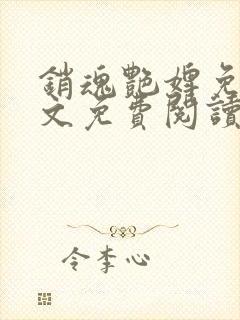 銷魂艷婢免
文免費閱讀
令李心